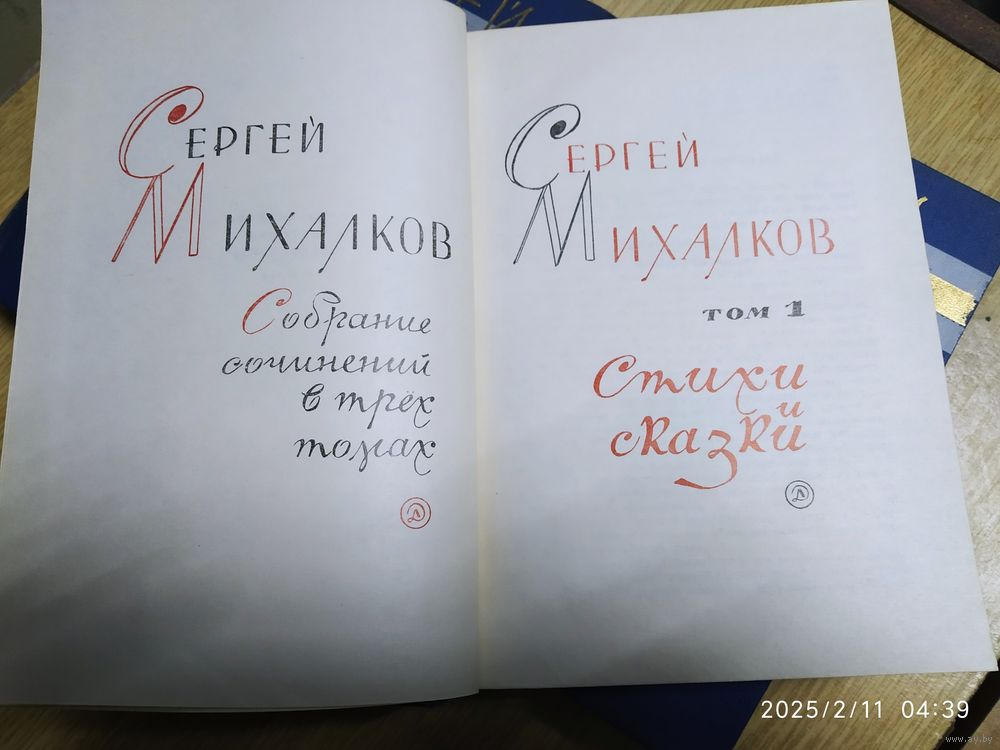 СЕРГЕЙ
МИХАЛКОВ
Собрание
сочинений
в трёх
томах
СЕРГЕЙ
МИХАЛКОВ
ТОМ 1
Стихи
и
сказки
2025/2/11 04:39
www.ay.by